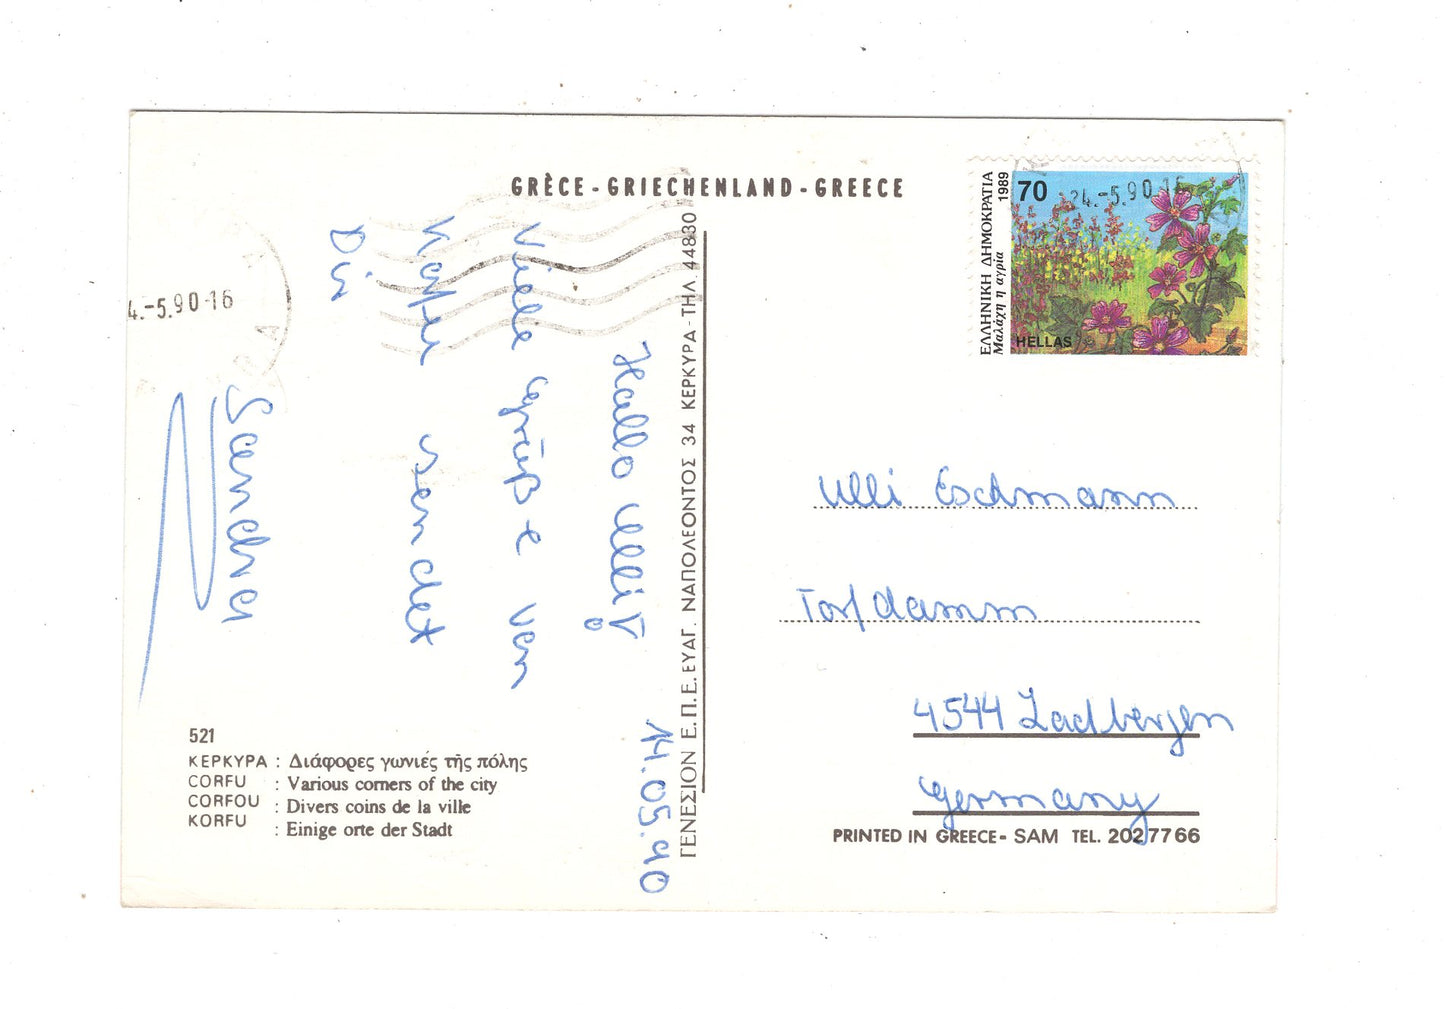 GRÈCE - GRIECHENLAND - GREECE
ΕΛΛΗΝΙΚΗ ΔΗΜΟΚΡΑΤΙΑ
1989
Μαλάχη η αγρία
70
HELLAS
24.-5.90-16
4.-5.90-16
14.05.90
Hallo Ulli!
Viele Grüße von
Korfu sendet
Dir
Sandra
ΓΕΝΕΣΙΟΝ Ε.Π.Ε. ΕΥΑΓ. ΝΑΠΟΛΕΟΝΤΟΣ 34 ΚΕΡΚΥΡΑ - ΤΗΛ 44830
Ulli Eschmann
Torfdamm
4544 Ladbergen
Germany
521
ΚΕΡΚΥΡΑ : Διάφορες γωνιές τῆς πόλης
CORFU : Various corners of the city
CORFOU : Divers coins de la ville
KORFU : Einige orte der Stadt
PRINTED IN GREECE - SAM TEL. 2027766